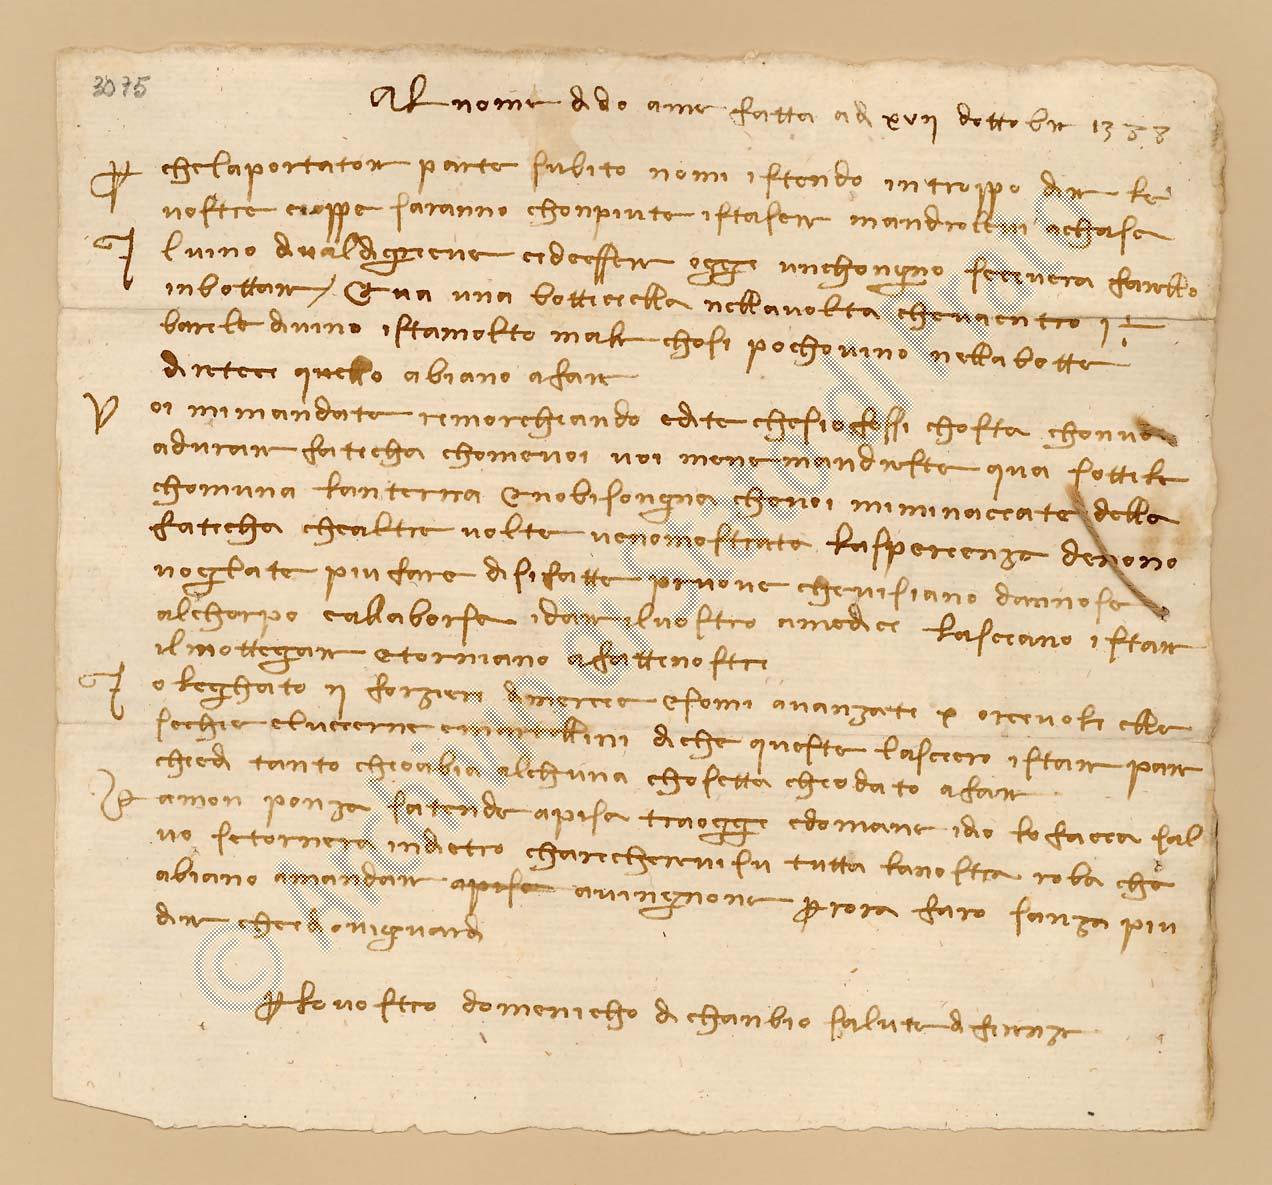 3075
Al nome di dio ame fatta a dì xvii d'ottobre 1388
Per chelaportatore parte subito nomi istendo introppo dire le
vostre cioppe saranno chonpiute istasera manderolevi achasa
Il vino divaldigrieve cideessere oggi unchongno secivera farello
inbottare / Eva una botticiella nellavolta chevaentro 1 1/2
barele divino istamolto male chosi pochovino nellabotte
direteci quello abiano afare
Voi mimandate rimorcheando edite chesiofossi chosta chonvoi
adurare faticha chomevoi voi menemandreste qua sottile
chomuna lanterna Enobisongna chevoi miminacciate della
faticha chealtre volte venomostrate lasperienza denono
vogliate piufare disifatte pruove chevisiano dannose
alchorpo eallaborsa idare ilvostro amedici lasciano istare
ilmottegare etorniano afattinostri
Io leghato ii forzieri dimercie esomi avanzati x orcivoli elle
sechie elucierne emartellini diche queste lasciero istare par
chiedi tanto cheoabia alchuna chosetta cheodato afare
Ramon ponza satende apisa traoggi edomane idio lofaccia sal
vo setornera indietro charicherevisu tutta lanostra roba che
abiano amandare apisa avingnone Perora faro sanza piu
dire cheidioviguardi
Per lo vostro domenicho di chanbio salute difirenze
© Archivio di Stato di Prato